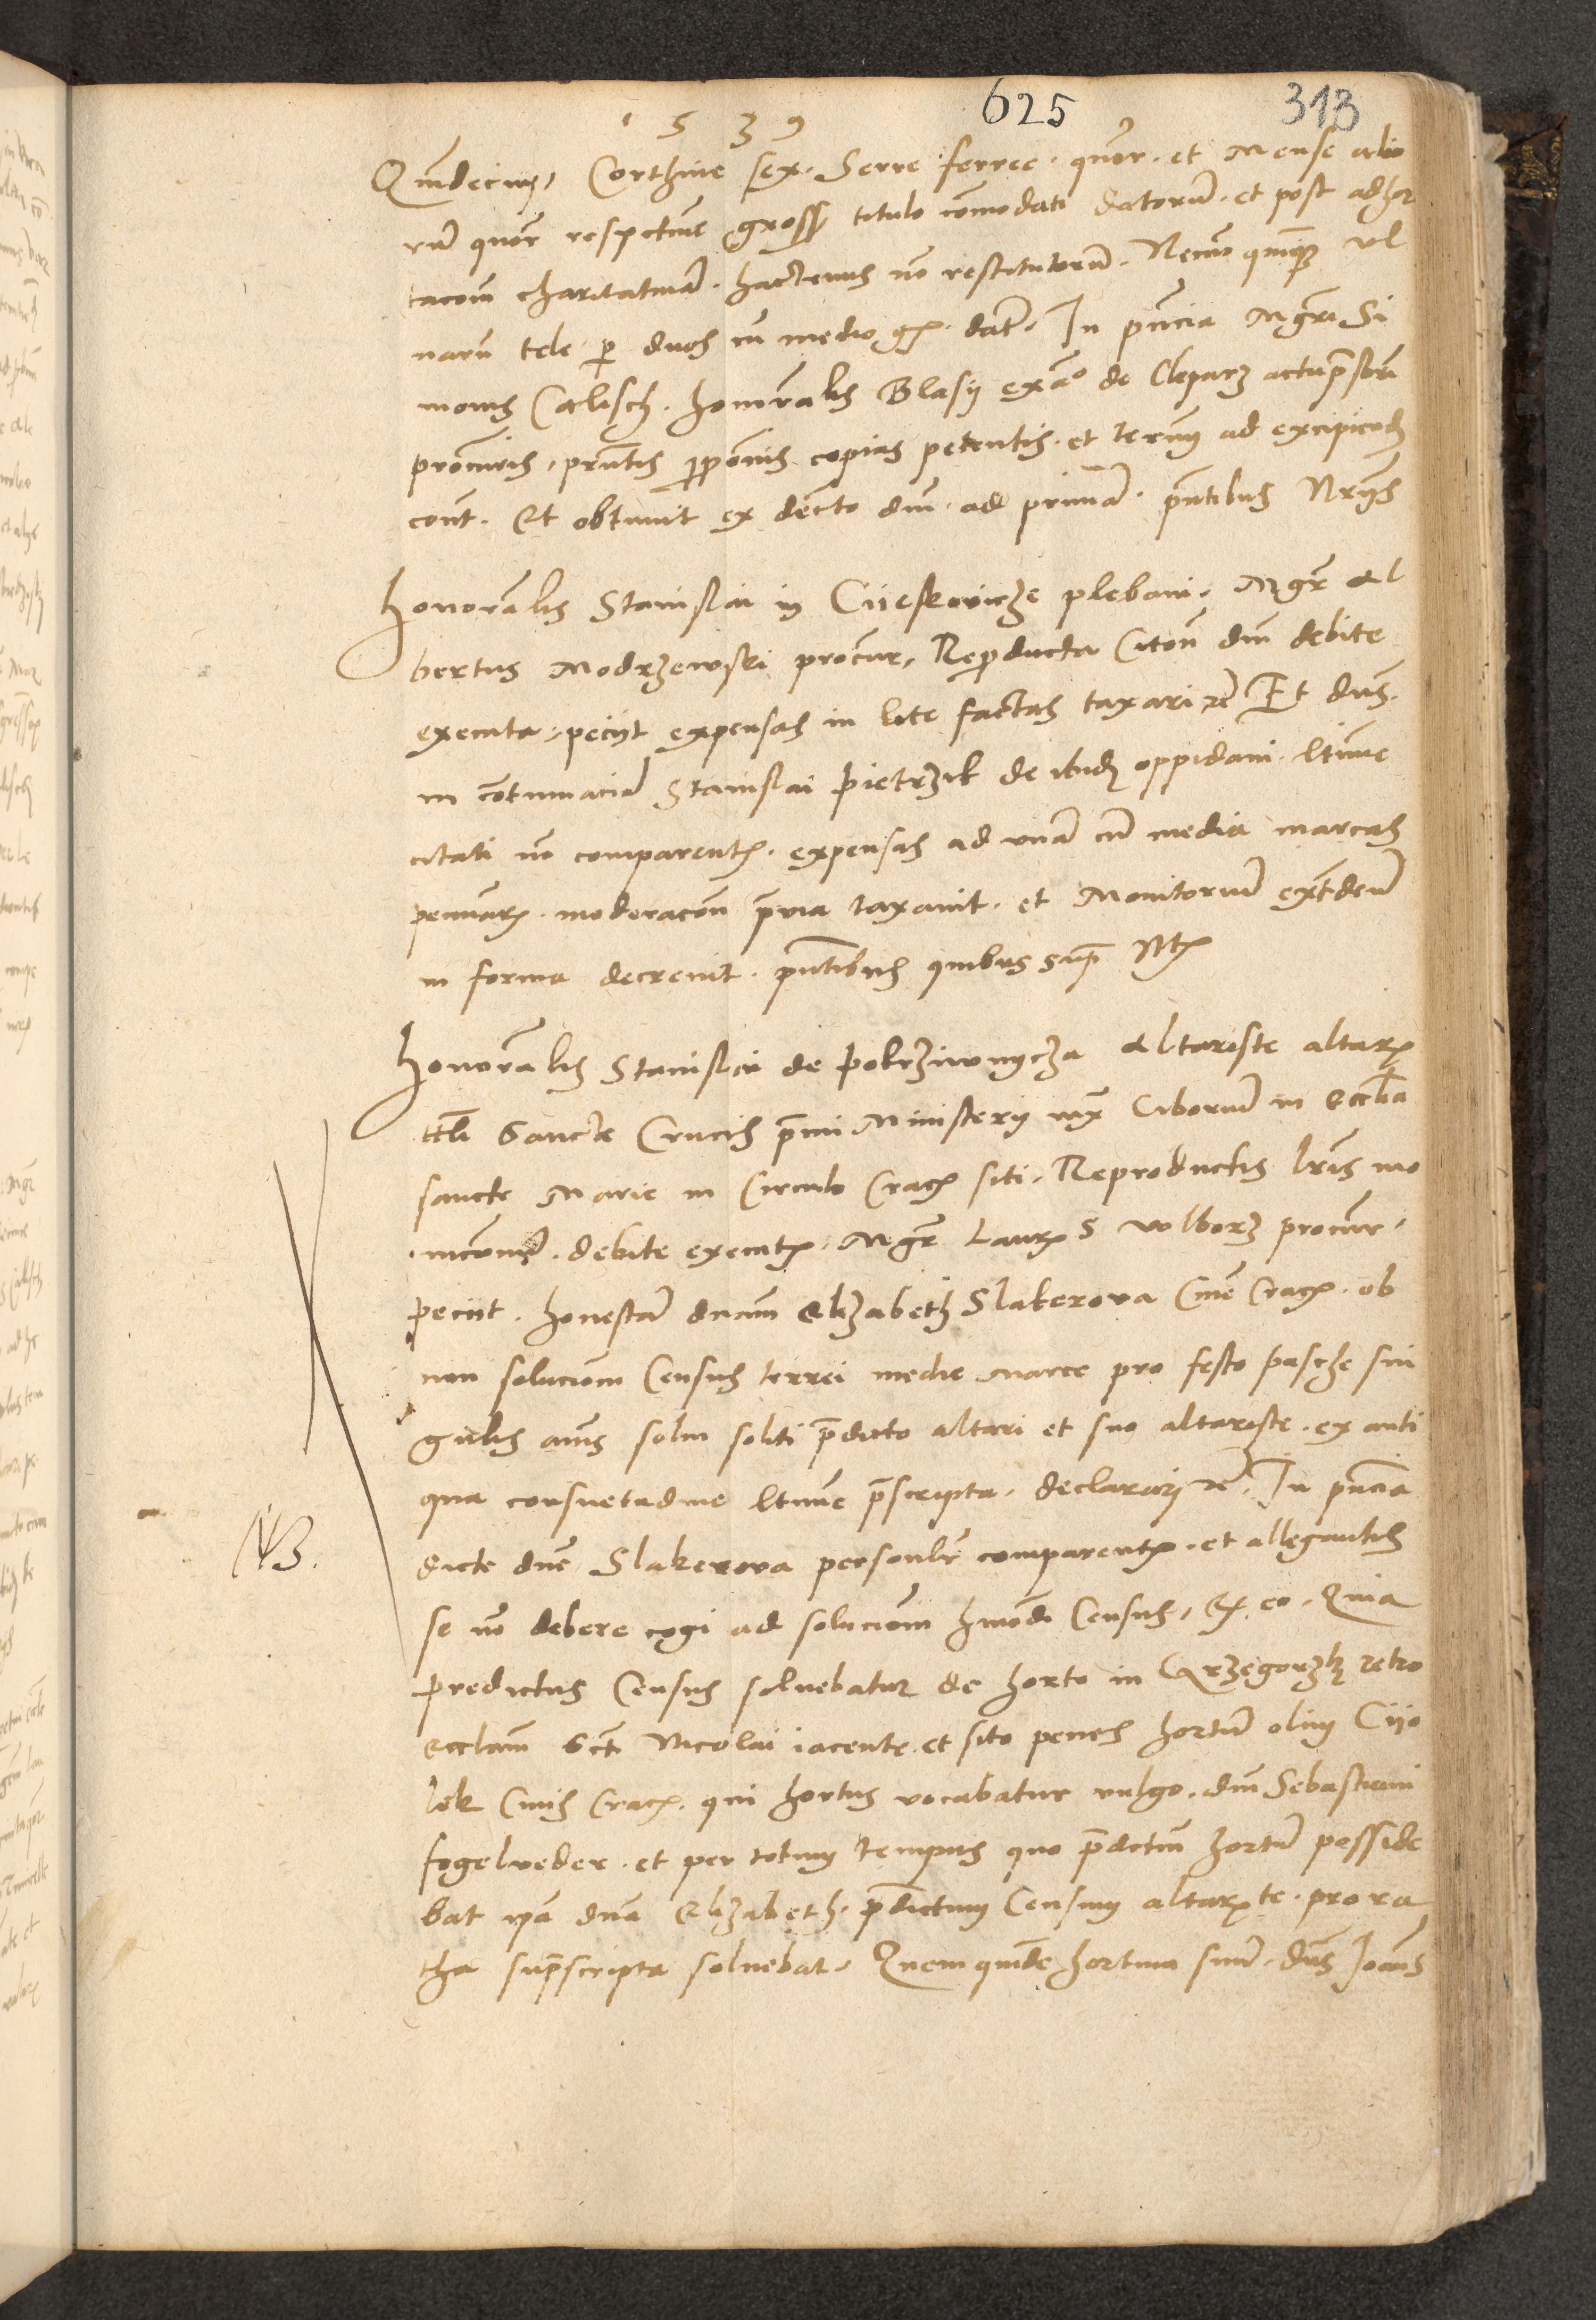 1539
625
313
Quindecim, Corthine sex. Serre ferree. quor. et Mense alio
rum quor respective gross titulo comodati datorum. et post adhor
tacom charitatiuam. hactenus no restitutorum. Necno quinq ul
narum tele per duos cu medio gr. dat. In pncia Mgri Si
monis Calisch. honorabilis Blasy de Cleparz
procuris, pntis copias petentis. et termi ad excipiend
cont. Et obtinuit ex decreto dni. ad primam. pntibus
honorabilis Stanislai in Ciieskovicze plebani. Mgr Al
bertus Modrzewski procur, Reproducta Citon dni debite
executa, peciit expensas in lite factas taxari etc Et dns.
in contumacia Stanislai Pietrzik de ibid oppidani. ltime
citati no comparent. expensas ad unam cum media marcas
pecuniar. moderacon pruia taxauit. et Monitorium
in forma decreuit. pntibus quibus supra
honorabilis Stanislai de Pokrziwnycza altariste altaris
ttli Sancte Crucis pmi Ministery Ciborium in eccla
sancte Marie in Circulo Crac siti. Reproductis lris mo
debite executis. Mgr Laur S Wolborz procur.
peciit. honestam dnam Elizabeth Slakerova Ciue Crac. ob
non soluciom Census terrei medie marce pro festo pasche sin
gulis annis solui soliti pdicto altari et suo altariste. ex anti
qua consuetudine ltime prscripta. declarari etc. In pncia
dicte dne Slakerova personlr comparent. et allegantis
se no debere cogi ad soluciom hmodi Census, Ex eo. Quia
predictus Census soluebatur de horto in Grzegorzki retro
ecclam Sct Nicolai iacente. et sito penes hortum olim Ciio
lek Ciuis Crac. qui hortus vocabatur vulgo. dni Sebastiani
fogelveder. et per totum tempus quo pdictum hortum posside
bat ipa dna Elizabeth. pdictum Censum altariste. pro ra
tha suprscripta soluebat. Quem quide hortum suum. dns Joans
NB.